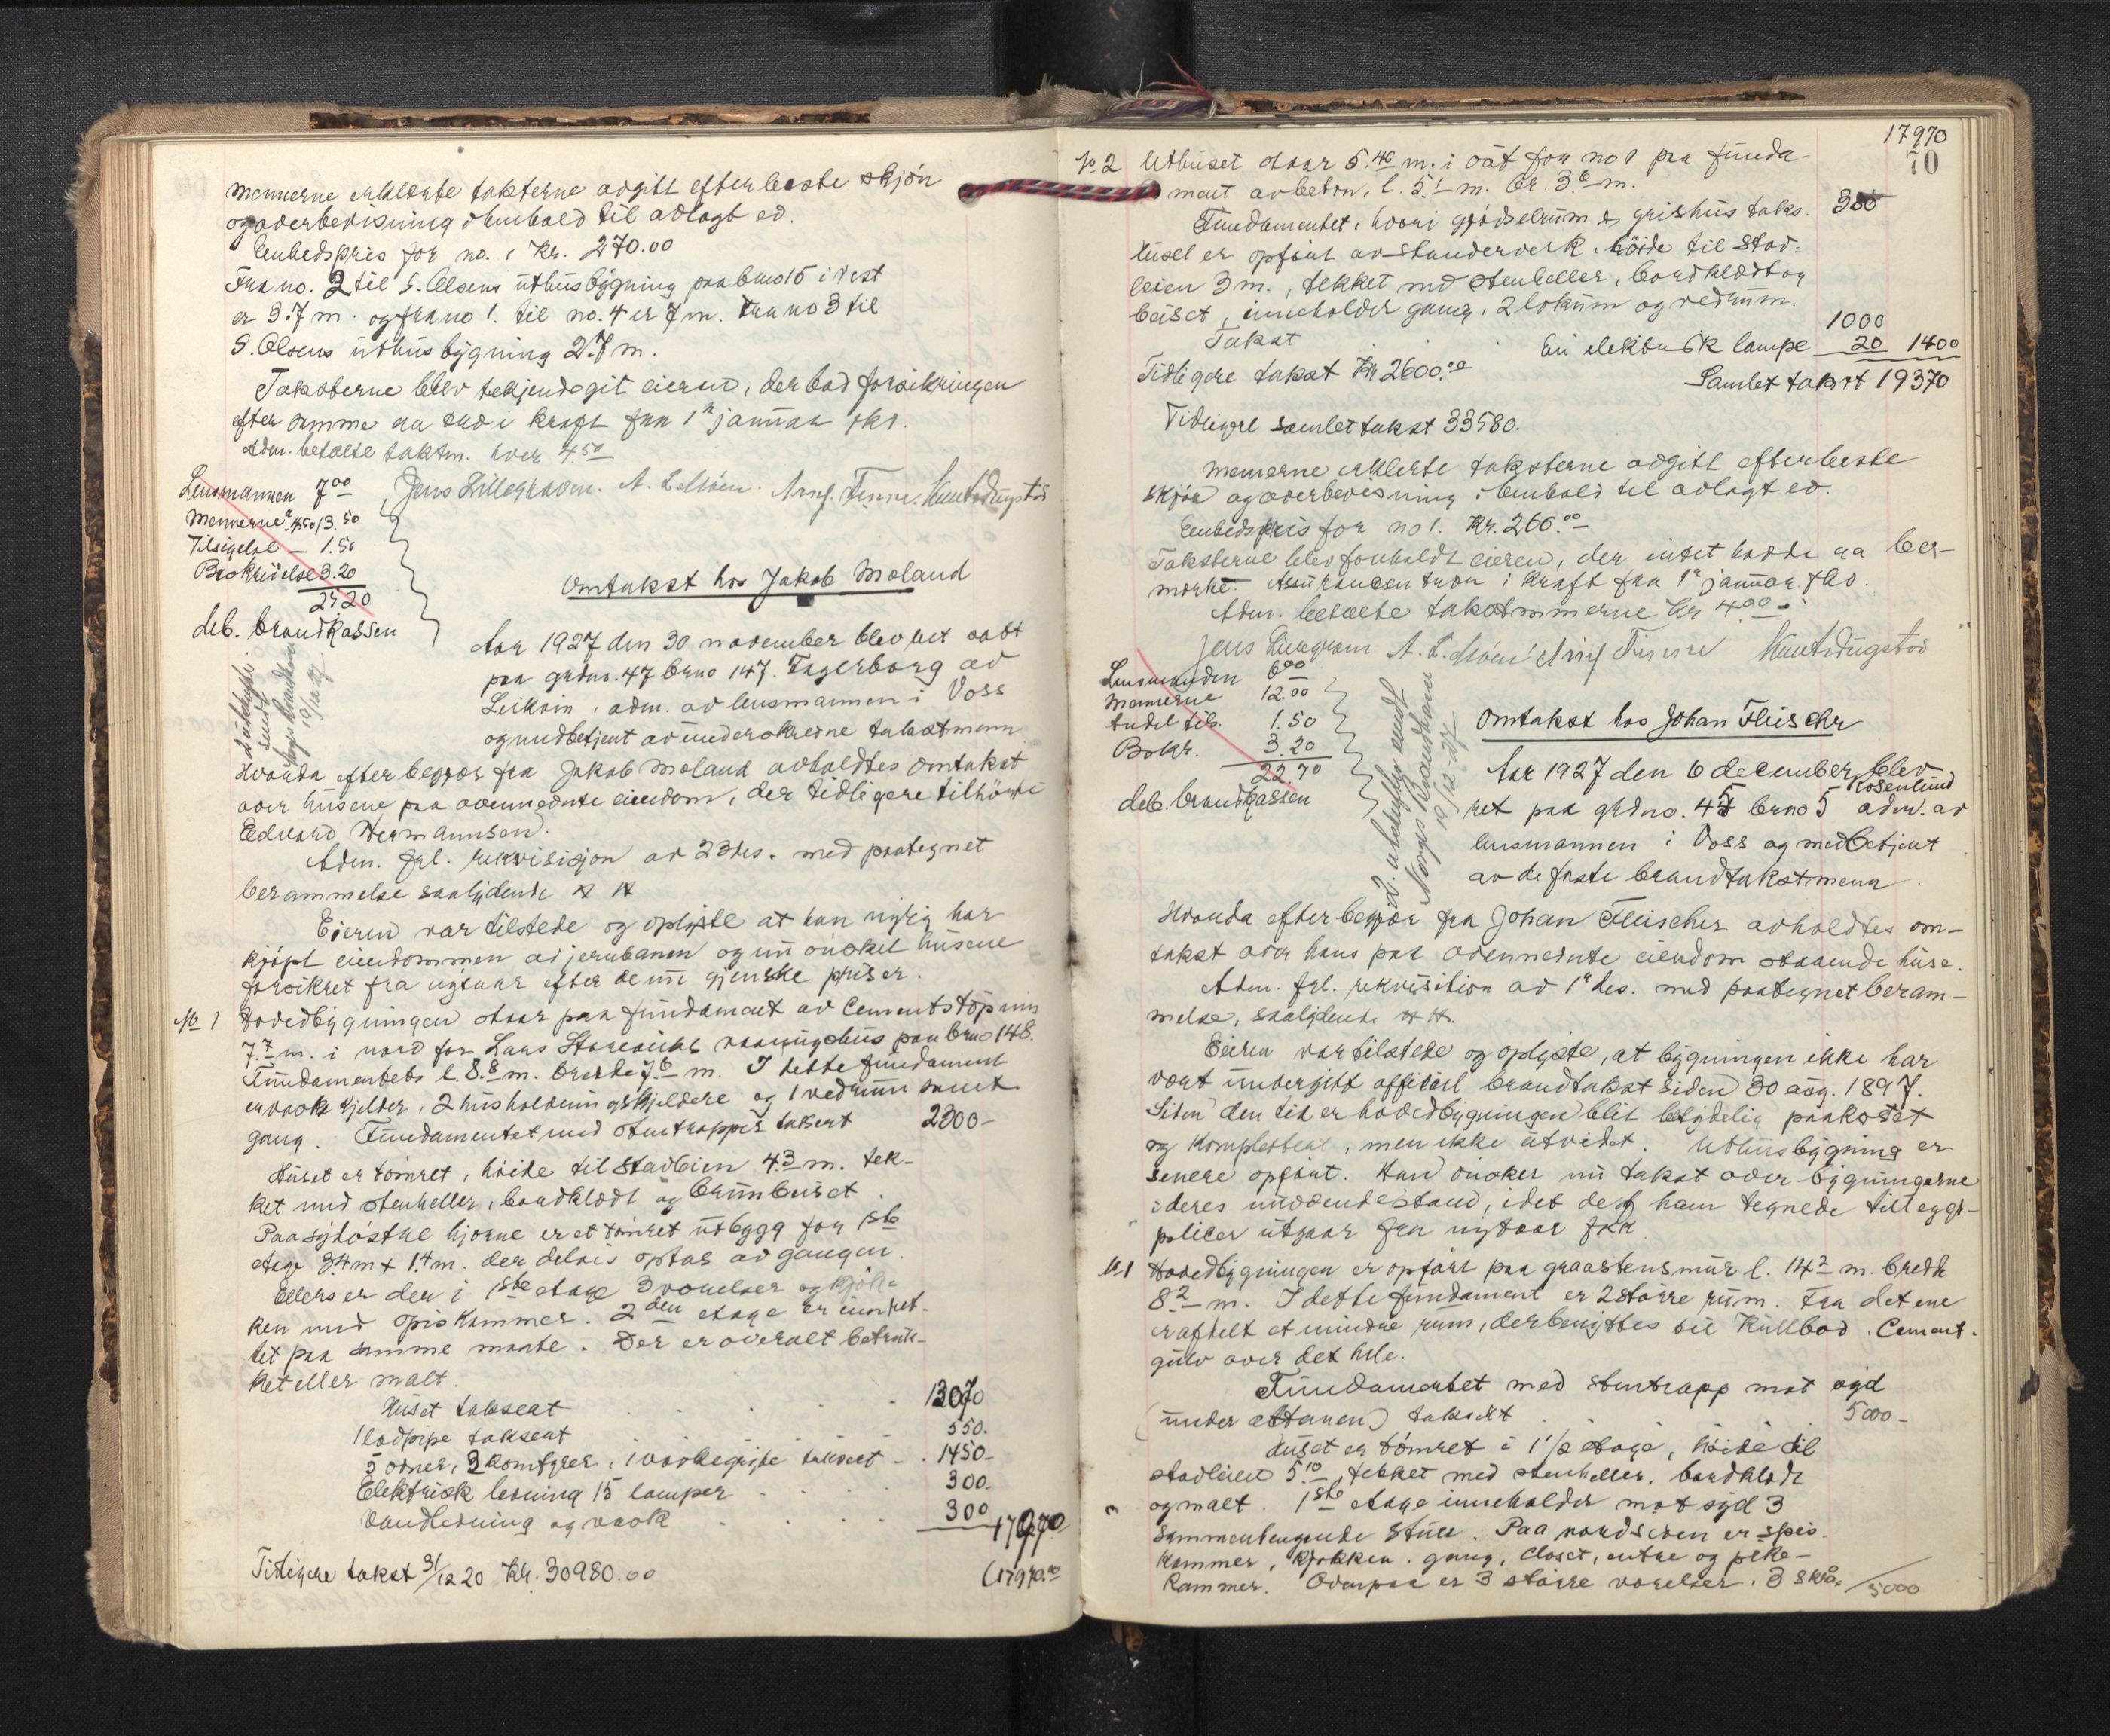 Mennerne erklærte taksterne avgitt efter beste skjøn
og overbevisning i henhold til avlagt ed.
Enhedspris for no. 1 Kr. 270.00
Fra no. 2 til S. Olsens uthusbygning paa brno 15 i vest
er 3.7 m. og fra no 1. til no. 4 er 7 m. Fra no 3 til
S. Olsens uthusbygning 2.7 m.
Taksterne blev bekjendtgit eieren, der bad forsikringen
efter samme aa træ i kraft fra 1ste januar
Adm. betalte takstm. hver 4.50
Lensmannen 7.00
Mennerne a 4.50 13.50
Tilsigelse - 1.50
Beskrivelse 3.20
25 20
deb. brandkassen
Jens Lillegraven. A. L. Móen. Arnf. Finne. Knut Dugstad
Utskrift
sendt
Norges Brandkasse
19/12 27
Omtakst hos Jakob Moland
Aar 1927 den 30 november blev ret sat
paa grdno. 47 brno 147. Fagerborg av
Leikvin, adm. av lensmannen i Voss
og medbetjent av underskrevne takstmenn
Hvorda efter begjær fra Jakob Moland avholdtes omtakst
over husene paa ovennevnte eiendom, der tidligere tilhørte
Edvard Hermannsen.
Adm. frl. rekvisisjon av 23 ds. med paategnet
berammelse saalydende
Eieren var tilstede og oplyste at han nylig har
kjøpt eiendommen av jernbanen og nu ønsket husene
forsikret fra nytaar efter de nu gjenske priser.
No 1 Hovedbygningen staar paa fundament av Cementstøp
7.7 m. i nord for Lars vaaningshus paa brno 148.
Fundamentets l. 8.8 m. bredde 7.6 m. I dette fundament
er vask kjelder, 2 husholdningskjeldere og 1 vedrum samt
gang. Fundamentet med stentrapper taksert 2300-
Huset er tømret, høide til Stavleien 4.3 m. tek-
ket med stenheller, bordklædt og brunbeiset.
Paa sydøstre hjørne er et tømret utbygg for 1ste
etage 3.4 m x 1.4 m. der delvis optas av gangen.
Ellers er der i 1ste etage 3 værelser og kjøk-
ken med spiskammer. 2den etage er innret-
tet paa samme maate. Der er overalt betruk-
ket eller malt.
Huset taksert 13070
1 lodpipe taksert 550.
5 ovner, 2 komfyrer, 1 taksert 1450-
Elektrisk ledning 15 lamper 300.
Vandledning og vask 300 17970
Tidligere takst 31/12 20 Kr. 30980.00 (17970.00
17970
70
No. 2 Uthuset staar 5.40 m. i øst for no 1 paa funda-
ment av beton, l. 5.1 m. br. 3.6 m.
Fundamentet, hvori gjødselrum og grishus taks. 380
Huset er opført av standerverk. høide til stav-
leien 3 m., tekket med stenheller, bordklædt og
beiset, inneholder gang, 2 lokum og vedrum.
Takst 1000
En elektrisk lampe 20 1400
Tidligere takst Kr 2600.00
Samlet takst 19370
Tidligere samlet takst 33580.
Mennerne erklærte taksterne avgitt efter beste
skjøn og overbevisning i henhold til avlagt ed.
Enhedspris for no 1. Kr. 266.00
Taksterne blev forholdt eieren, der intet hadde aa be-
merke. Assuransen træ i kraft fra 1ste januar
Adm. betalte takstmennerne Kr 4.00
Jens Lillegraven A. L. Móen Arnf Finne Knut Dugstad
Lensmanden 6.00
Mennerne 12.00
Andel tils. 1.50
Beskr. 3.20
22.70
deb. brandkassen
2. utskrifter sendt
Norges Brandkasse
19/12-27
Omtakst hos Johan Fleischer
Aar 1927 den 6 december blev
Rosenlund
ret paa grdno. 45 brno 5 adm. av
lensmannen i Voss og medbetjent
av de faste brandtakstmenn.
Hvorda efter begjær fra Johan Fleischer avholdtes om-
takst over hans paa ovennevnte eiendom staaende huse.
Adm. frl. rekvisition av 1ste ds. med paategnet beram-
melse, saalydende
Eieren var tilstede og oplyste, at bygningen ikke har
vært undergitt officiel brandtakst siden 30 aug. 1897.
Siden den tid er hovedbygningen blit betydelig paakostet
og komplettert, men ikke utvidet. Uthusbygning er
senere opført. Han ønsker nu takst over bygningerne
i deres nuværende stand, idet de af ham tegnede tillegs-
policer utgaar fra nytaar
No. 1 Hovedbygningen er opført paa graastensmur l. 14.2 m. bredde
8.2 m. I dette fundament er 2 større rum. Fra det ene
er aftelt et mindre rum, der benyttes til Kullbod. Cement-
gulv over det hele.
Fundamentet med stentrapp mot syd
(under altanen) taksert 5000-
Huset er tømret i 1 1/2 etage, høide til
stavleien 5.10, tekket med stenheller. bordklædt
og malt. 1ste etage inneholder mot syd 3
sammenhengende stuer. Paa nordsiden er spis-
kammer, kjøkken. gang, Closet, entre og pike-
kammer. Ovenpaa er 3 større værelser. 3
5000